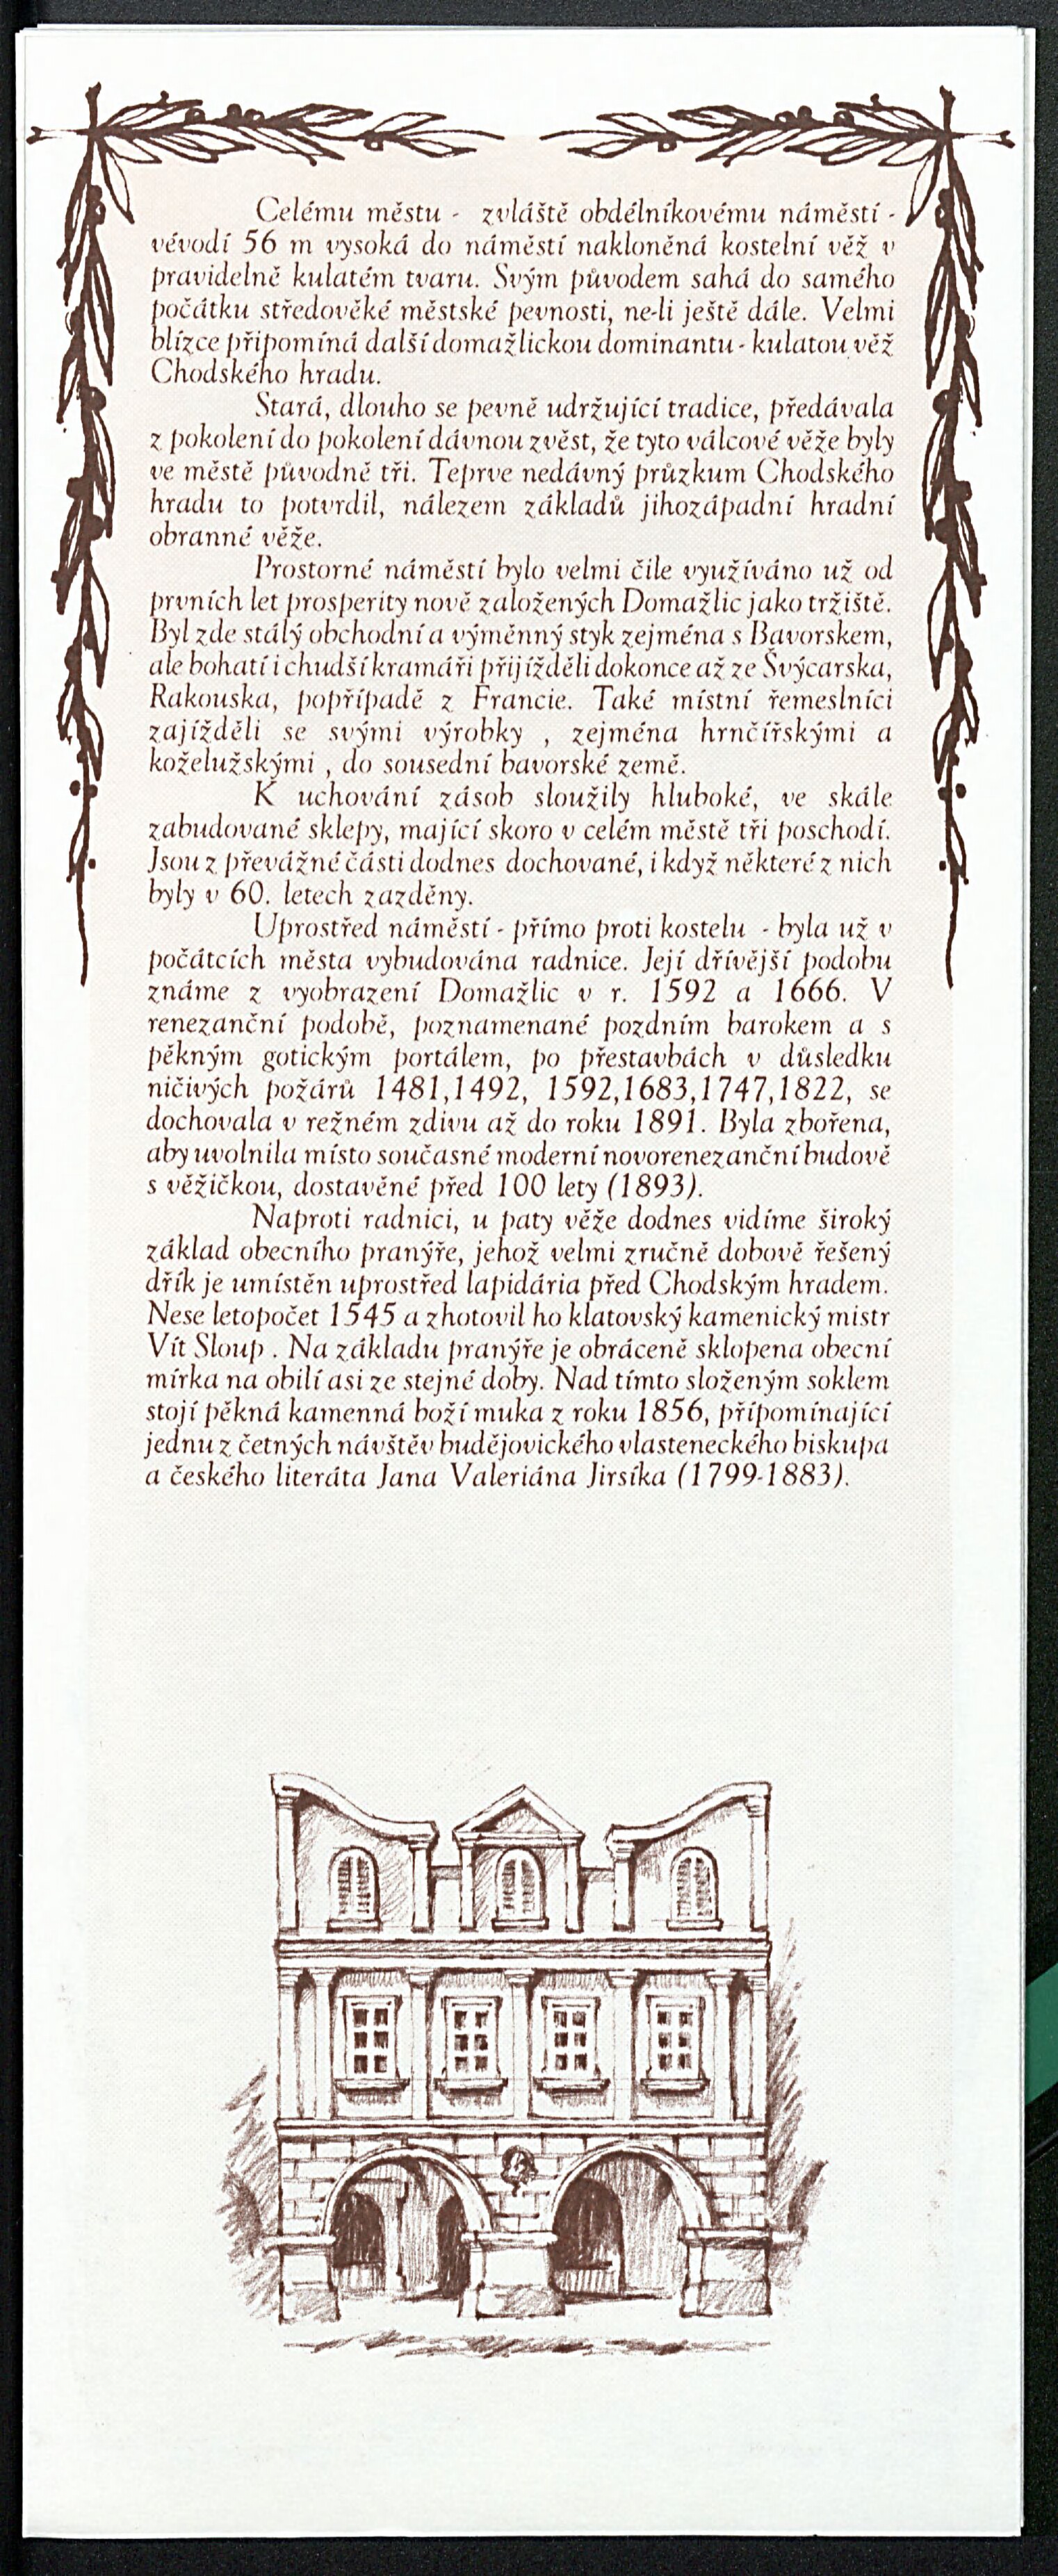 Celému městu - zvláště obdélníkovému náměstí -
vévodí 56 m vysoká do náměstí nakloněná kostelní věž v
pravidelně kulatém tvaru. Svým původem sahá do samého
počátku středověké městské pevnosti, ne-li ještě dále. Velmi
blízce připomíná další domažlickou dominantu - kulatou věž
Chodského hradu.
Stará, dlouho se pevně udržující tradice, předávala
z pokolení do pokolení dávnou zvěst, že tyto válcové věže byly
ve městě původně tři. Teprve nedávný průzkum Chodského
hradu to potvrdil, nálezem základů jihozápadní hradní
obranné věže.
Prostorné náměstí bylo velmi čile využíváno už od
prvních let prosperity nově založených Domažlic jako tržiště.
Byl zde stálý obchodní a výměnný styk zejména s Bavorskem,
ale bohatí i chudší kramáři přijížděli dokonce až ze Švýcarska,
Rakouska, popřípadě z Francie. Také místní řemeslníci
zajížděli se svými výrobky , zejména hrnčířskými a
koželužskými , do sousední bavorské země.
K uchování zásob sloužily hluboké, ve skále
zabudované sklepy, mající skoro v celém městě tři poschodí.
Jsou z převážné části dodnes dochované, i když některé z nich
byly v 60. letech zazděny.
Uprostřed náměstí - přímo proti kostelu - byla už v
počátcích města vybudována radnice. Její dřívější podobu
známe z vyobrazení Domažlic v r. 1592 a 1666. V
renezanční podobě, poznamenané pozdním barokem a s
pěkným gotickým portálem, po přestavbách v důsledku
ničivých požárů 1481,1492, 1592,1683,1747,1822, se
dochovala v režném zdivu až do roku 1891. Byla zbořena,
aby uvolnila místo současné moderní novorenezanční budově
s věžičkou, dostavěné před 100 lety (1893).
Naproti radnici, u paty věže dodnes vidíme široký
základ obecního pranýře, jehož velmi zručně dobově řešený
dřík je umístěn uprostřed lapidária před Chodským hradem.
Nese letopočet 1545 a zhotovil ho klatovský kamenický mistr
Vít Sloup . Na základu pranýře je obráceně sklopena obecní
mírka na obilí asi ze stejné doby. Nad tímto složeným soklem
stojí pěkná kamenná boží muka z roku 1856, připomínající
jednu z četných návštěv budějovického vlasteneckého biskupa
a českého literáta Jana Valeriána Jirsíka (1799-1883).